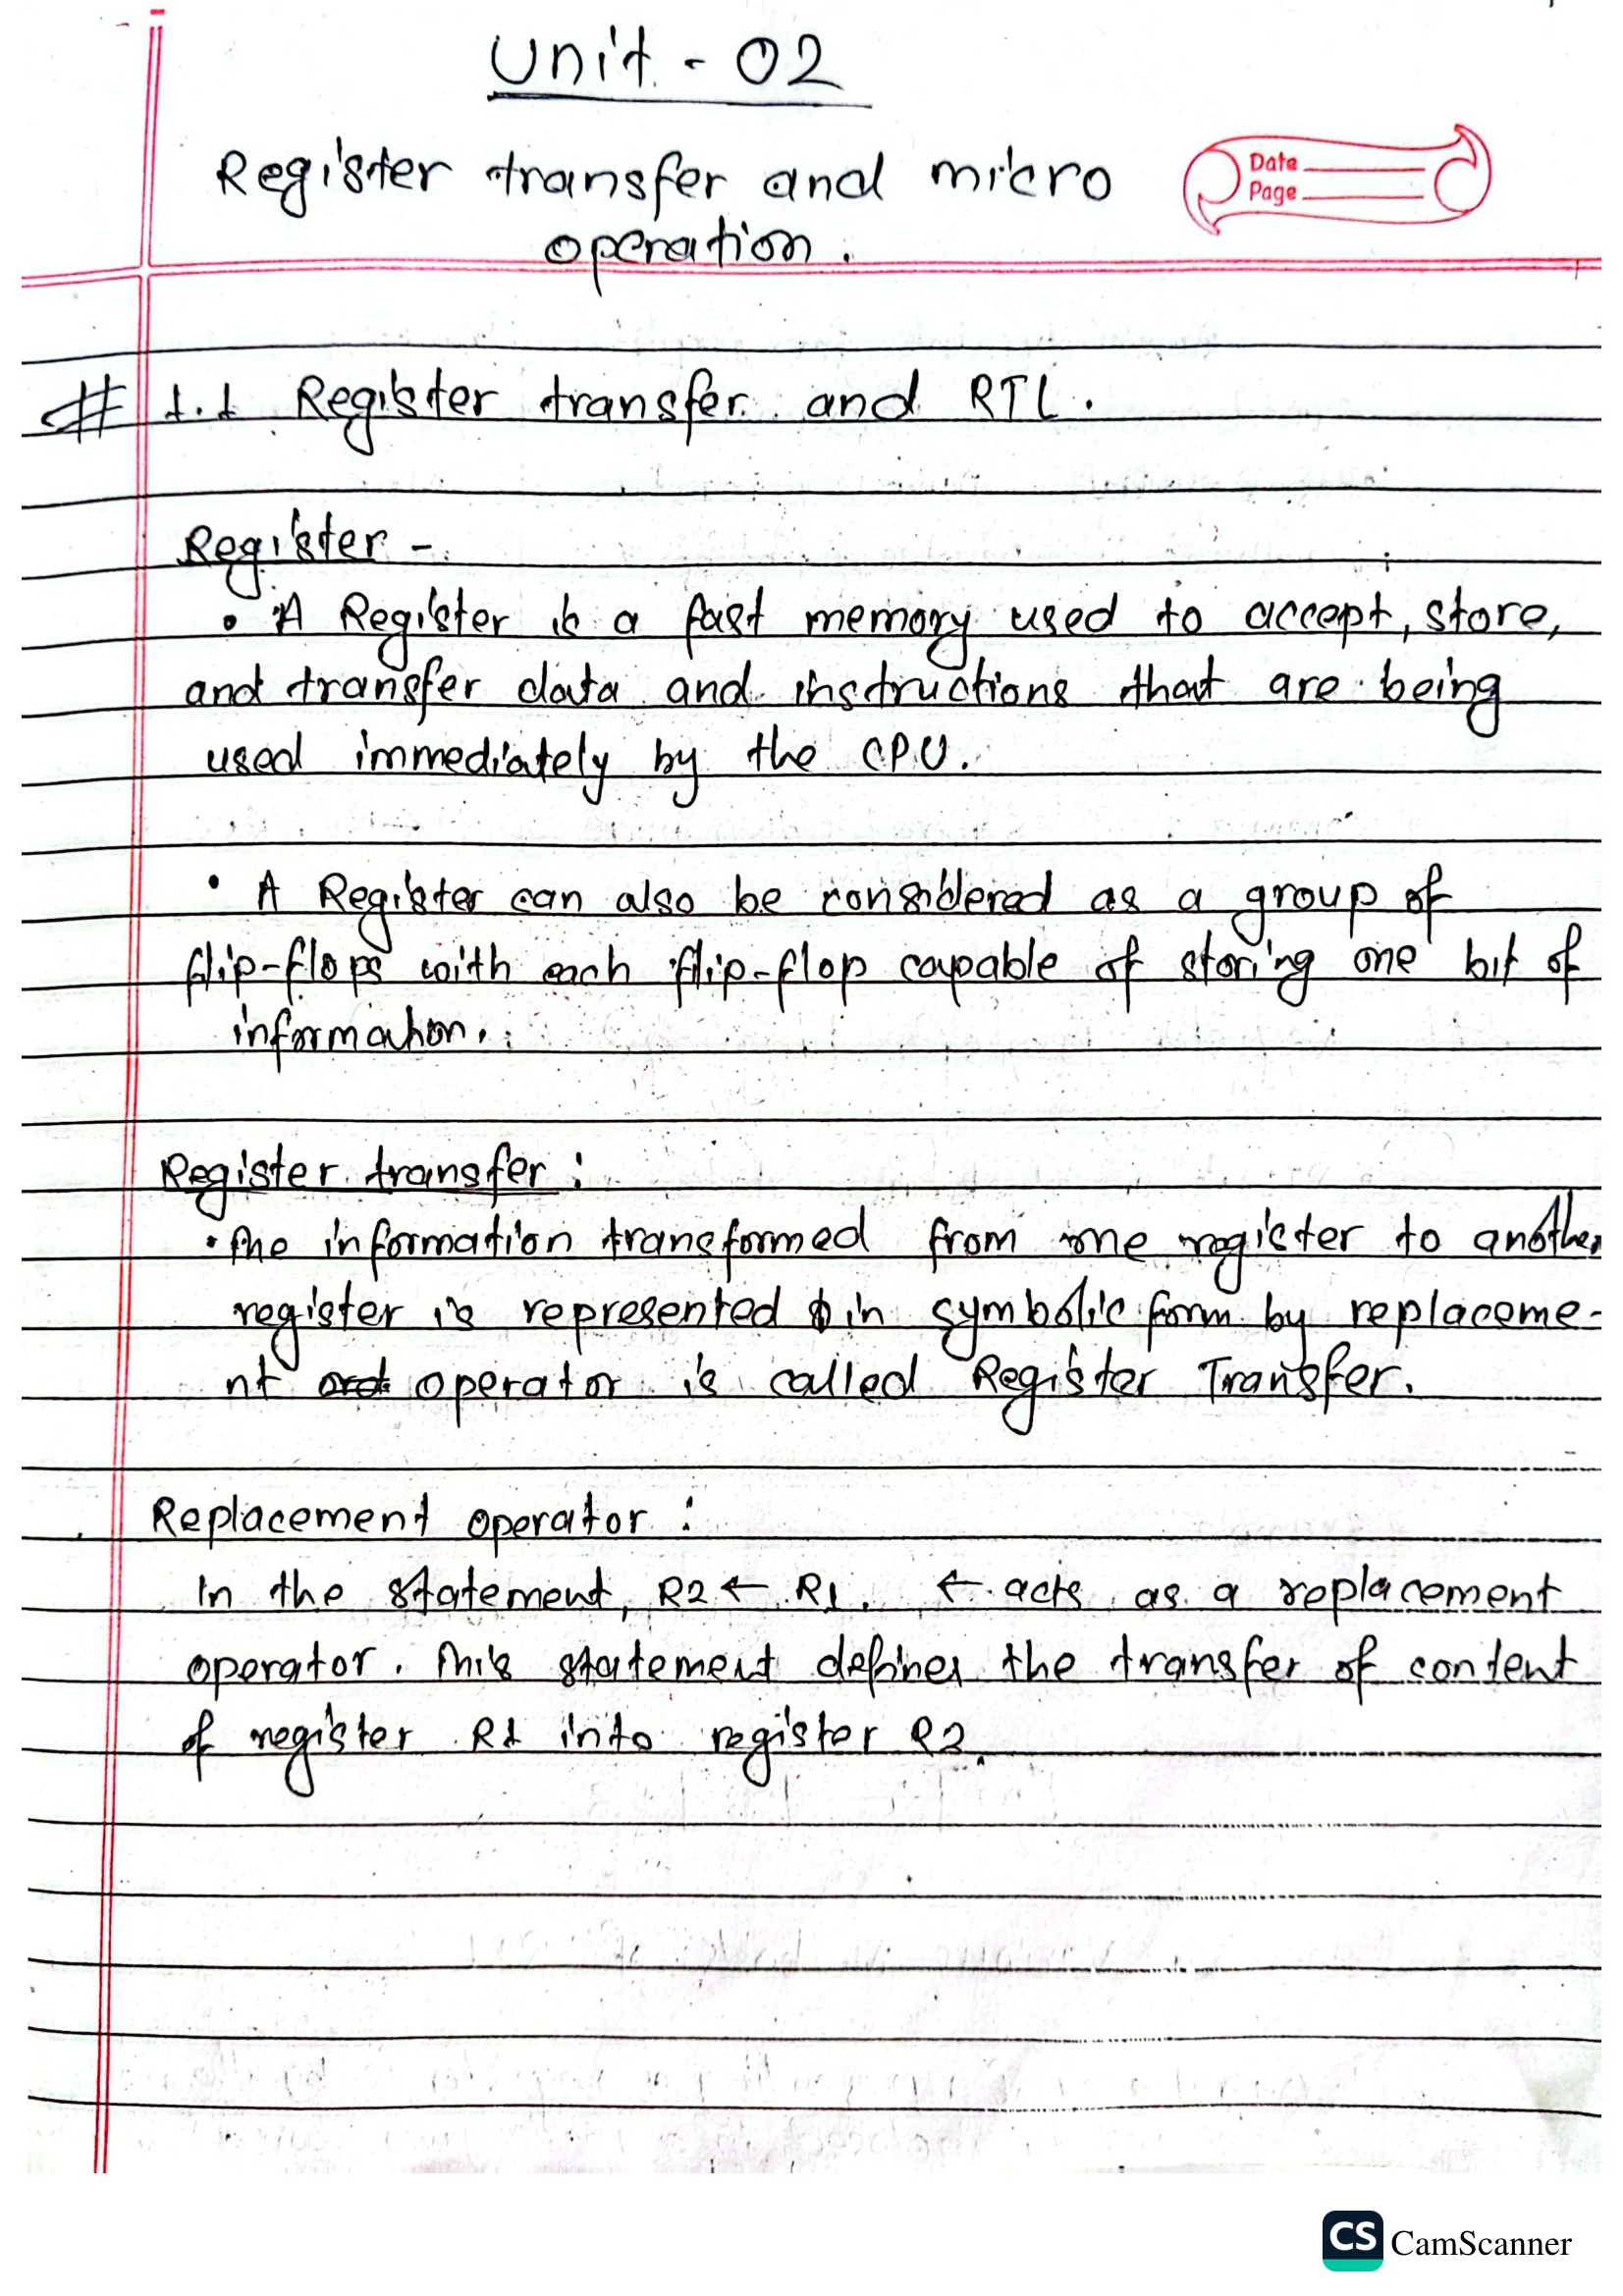 Unit - 02
Register transfer and micro
operation.
Date
Page
# 1.1 Register transfer and RTL.
Register -
• A Register is a fast memory used to accept, store,
and transfer data and instructions that are being
used immediately by the CPU.
• A Register can also be considered as a group of
flip-flops with each flip-flop capable of storing one bit of
information.
Register transfer :
• The information transformed from one register to another
register is represented in symbolic form by replaceme-
nt operator is called Register Transfer.
Replacement operator :
In the statement, R2 ← R1. ← acts as a replacement
operator. This statement defines the transfer of content
of register R1 into register R2.
CS CamScanner